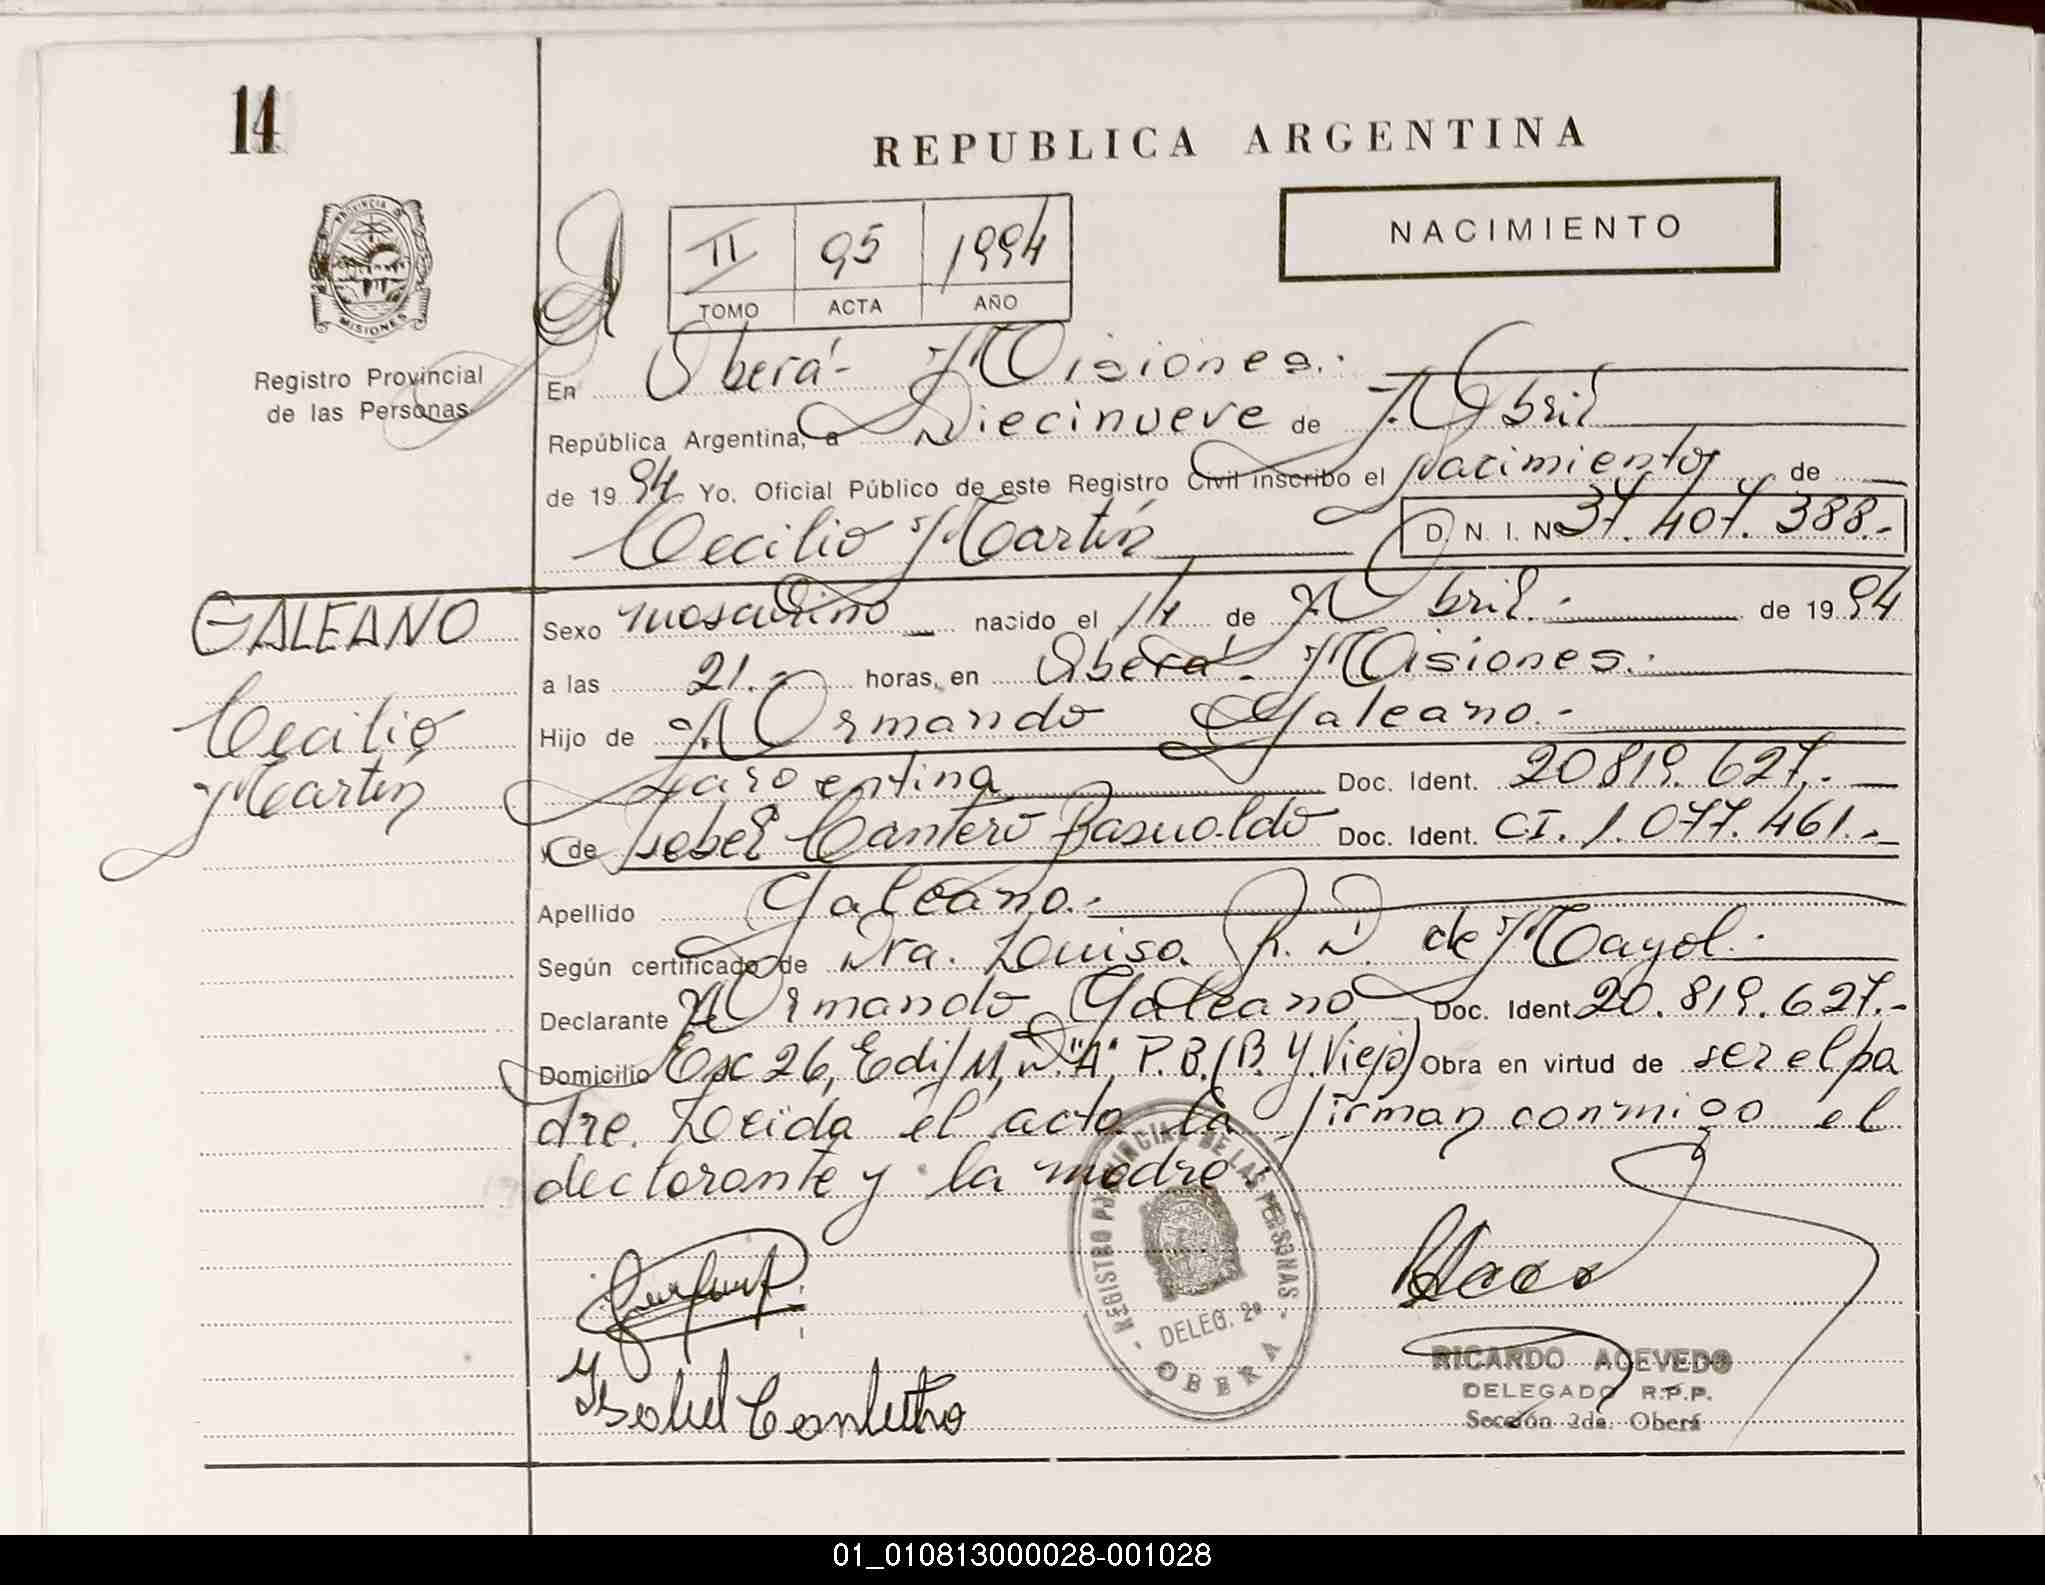 14
REPUBLICA ARGENTINA
NACIMIENTO
II 95 1994
TOMO ACTA AÑO
PROVINCIA DE
MISIONES
Registro Provincial
de las Personas
En Oberá - Misiones.-
República Argentina, a Diecinueve de Abril
de 1994 Yo, Oficial Público de este Registro Civil inscribo el nacimiento de
Cecilio Martín D. N. I. Nº 37.407.388.-
GALEANO
Cecilio
Martín
Sexo masculino nacido el 14 de Abril.- de 1994
a las 21.- horas, en Oberá - Misiones.-
Hijo de Armando Galeano.-
argentina Doc. Ident. 20819.627.-
y de Isabel Cantero Basualdo Doc. Ident. CI. 1.077.461.-
Apellido Galeano.-
Según certificado de Dra. Luisa R. D. de Mayol.-
Declarante Armando Galeano Doc. Ident. 20.819.627.-
Domicilio Esc 26, Edi/11, D."A" P.B./B. Y. Viejo) Obra en virtud de ser el pa
dre. Leída el acta la firman conmigo el
declarante y la madre.
REGISTRO PROVINCIAL DE LAS PERSONAS
DELEG. 2ª
OBERA
Isabel
RICARDO ACEVEDO
DELEGADO R.P.P.
Sección 2da. Oberá
01_010813000028-001028